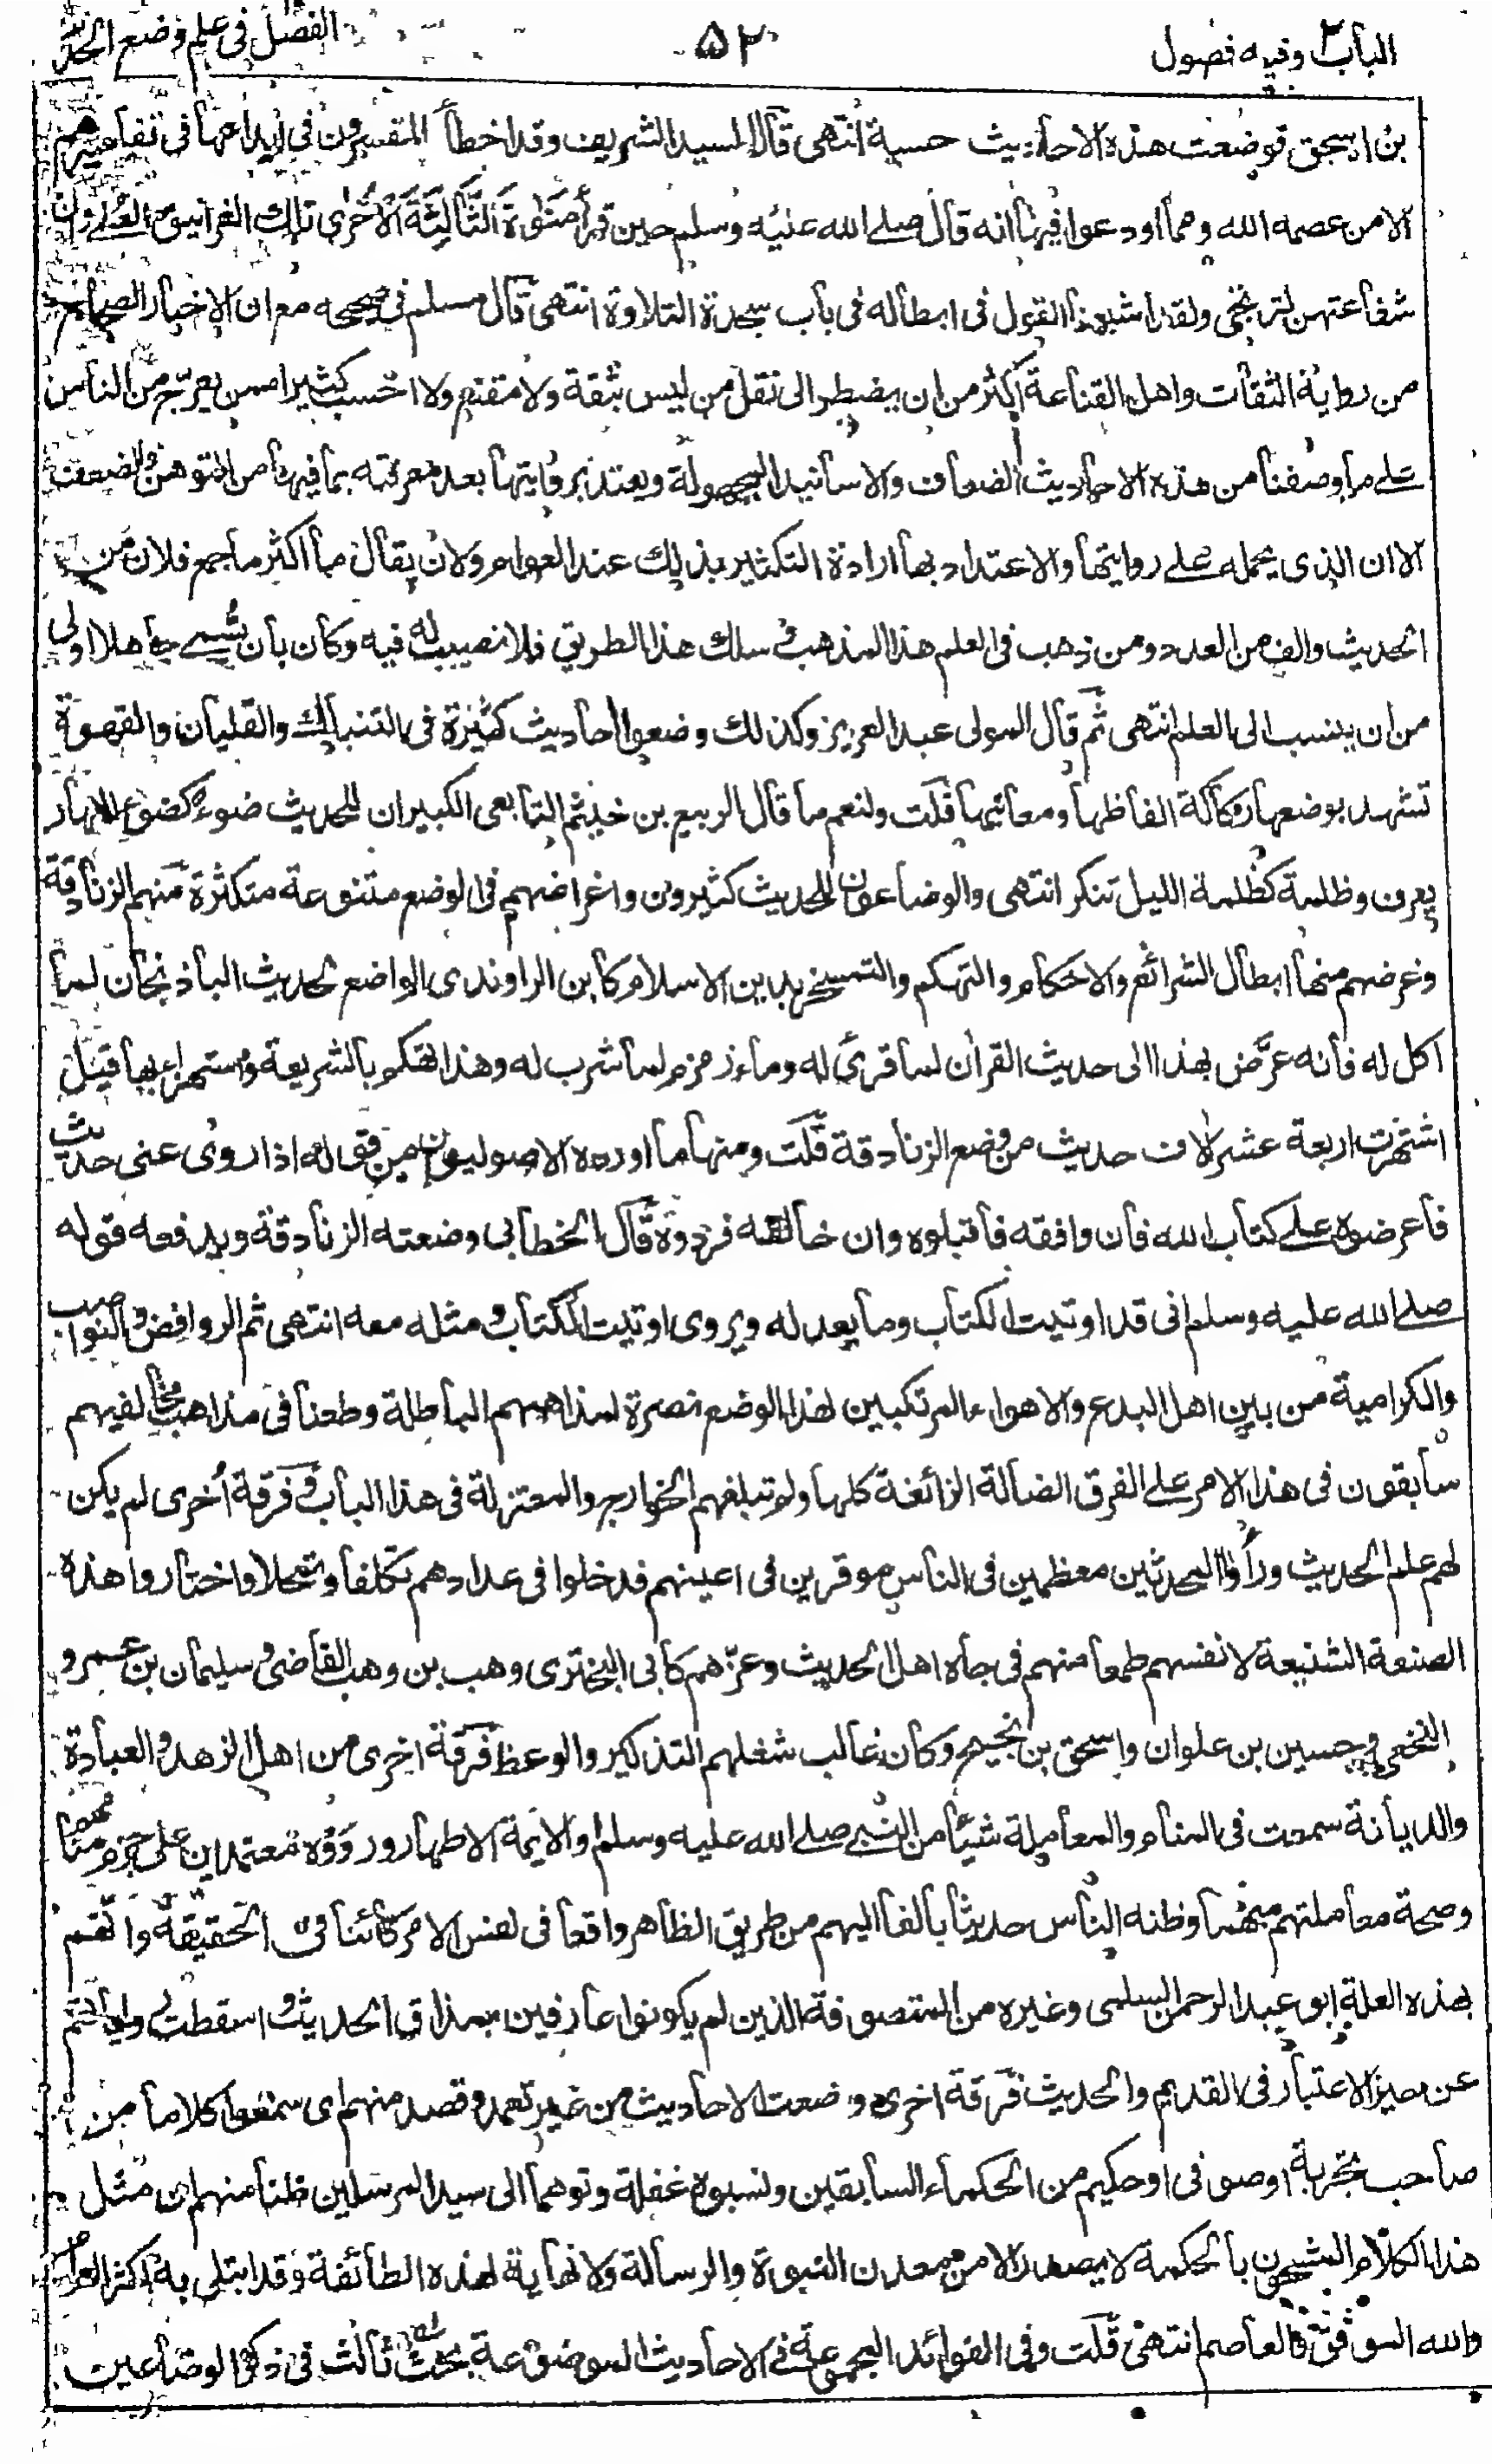 الباب ٢ وفيه فصول
٥٢
الفصل فى علم وضع الحديث
بن اسحق فوضعت هذه الاحاديث حسبة انتهى قال السيد الشريف وقد اخطأ المفسرون فى ايداعها فى تفاسيرهم
الا من عصمه الله ومما اودعوا فيها انه قال صلى الله عليه وسلم حين قرأ ومنوة الثالثة الاخرى تلك الغرانيق العلى وان
شفاعتهن لترتجى ولقد اشبعنا القول فى ابطاله فى باب سجدة التلاوة انتهى قال مسلم فى صحيحه مع ان الاخبار الصحاح
من رواية الثقات واهل القناعة اكثر من ان يضطر الى نقل من ليس بثقة ولا مقنع ولا احسب كثيرا ممن يعرّج من الناس
على ما وصفنا من هذه الاحاديث الضعاف والاسانيد المجهولة ويعتد بروايتها بعد معرفته بما فيها من التوهن والضعف
الا ان الذى يحمله على روايتها والاعتداد بها ارادة التكثير بذلك عند العوام ولان يقال ما اكثر ما جمع فلان من
الحديث والف من العدد ومن ذهب فى العلم هذا المذهب وسلك هذا الطريق فلا نصيب له فيه وكان بان يسمى جاهلا اولى
من ان ينسب الى العلم انتهى ثم قال المولى عبد العزيز وكذلك وضعوا احاديث كثيرة فى التنباك والقليان والقهوة
تشهد بوضعها ركاكة الفاظها ومعانيها قلت ولنعم ما قال الربيع بن خيثم التابعى الكبير ان للحديث ضوء كضوء النهار
يعرف وظلمة كظلمة الليل تنكر انتهى والوضاعون للحديث كثيرون واغراضهم فى الوضع متنوعة متكثرة منهم الزنادقة
وغرضهم منها ابطال الشرائع والاحكام والتهكم والتمسخر بدين الاسلام كابن الراوندى الواضع لحديث الباذنجان لما
اكل له فانه عرّض بهذا الى حديث القران لما قرئ له وماء زمزم لما شرب له وهذا تهكم بالشريعة واستهزاء بها قيل
اشتهرت اربعة عشر الاف حديث من وضع الزنادقة قلت ومنها ما اورده الاصوليون من قوله اذا روى عنى حديث
فاعرضوه على كتاب الله فان وافقه فاقبلوه وان خالفه فردوه قال الخطابى وضعته الزنادقة ويدفعه قوله
صلى الله عليه وسلم انى قد اوتيت الكتاب وما يعدله ويروى اوتيت الكتاب ومثله معه انتهى ثم الروافض والنواصب
والكرامية من بين اهل البدع والاهواء المرتكبين لهذا الوضع نصرة لمذاهبهم الباطلة وطعنا فى مذاهب مخالفيهم
سابقون فى هذا الامر على الفرق الضالة الزائغة كلها ولم تبلغهم الخوارج والمعتزلة فى هذا الباب وفرقة أخرى لم يكن
لهم علم الحديث ورأوا المحدثين معظمين فى الناس موقرين فى اعينهم فدخلوا فى عدادهم تكلفا وتمحلا واختاروا هذه
الصنعة الشنيعة لانفسهم طمعا منهم فى جاه اهل الحديث وعزّهم كابى البخترى وهب بن وهب القاضى وسليمان بن عمرو
النخعى وحسين بن علوان واسحق بن نجيح وكان غالب شغلهم التذكير والوعظ فرقة اخرى من اهل الزهد والعبادة
والديانة سمعت فى المنام والمعاملة شيئا من النبى صلى الله عليه وسلم والايمة الاطهار ورووه معتمدين على جزم منامهم
وصحة معاملتهم منهما وظنه الناس حديثا بالغا اليهم من طريق الظاهر واقعا فى نفس الامر كائنا فى الحقيقة واتهم
بهذه العلة ابو عبد الرحمن السلمى وغيره من المتصوفة الذين لم يكونوا عارفين بمذاق الحديث واسقطت رواياتهم
عن حيز الاعتبار فى القديم والحديث فرقة اخرى وضعت الاحاديث من غير تعمد وقصد منهم اى سمعوا كلاما من
صاحب تجربة اوصوفى او حكيم من الحكماء السابقين ونسبوه غفلة وتوهما الى سيد المرسلين ظنا منهم ان مثل
هذا الكلام المشحون بالحكمة لا يصدر الا من معدن النبوة والرسالة ولا نهاية لهذه الطائفة وقد ابتلى به اكثر العوام
والله الموفق والعاصم انتهى قلت وفى الفوائد المجموعة فى الاحاديث الموضوعة بحث ثالث فى ذكر الوضاعين